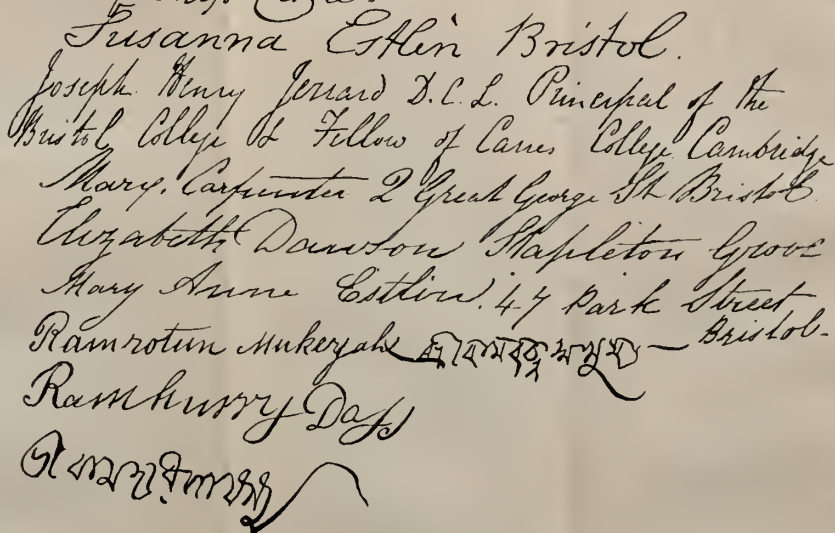 Susanna Estlin Bristol.
Joseph Henry Jerrard D.C.L. Principal of the
Bristol College & Fellow of Caius College Cambridge
Mary. Carpenter 2 Great George St Bristol.
Elizabeth Dawson Stapleton Grove
Mary Anne Estlin. 47 Park Street
Bristol-
Ramrotun Mukerjah
Ramhurry Dass